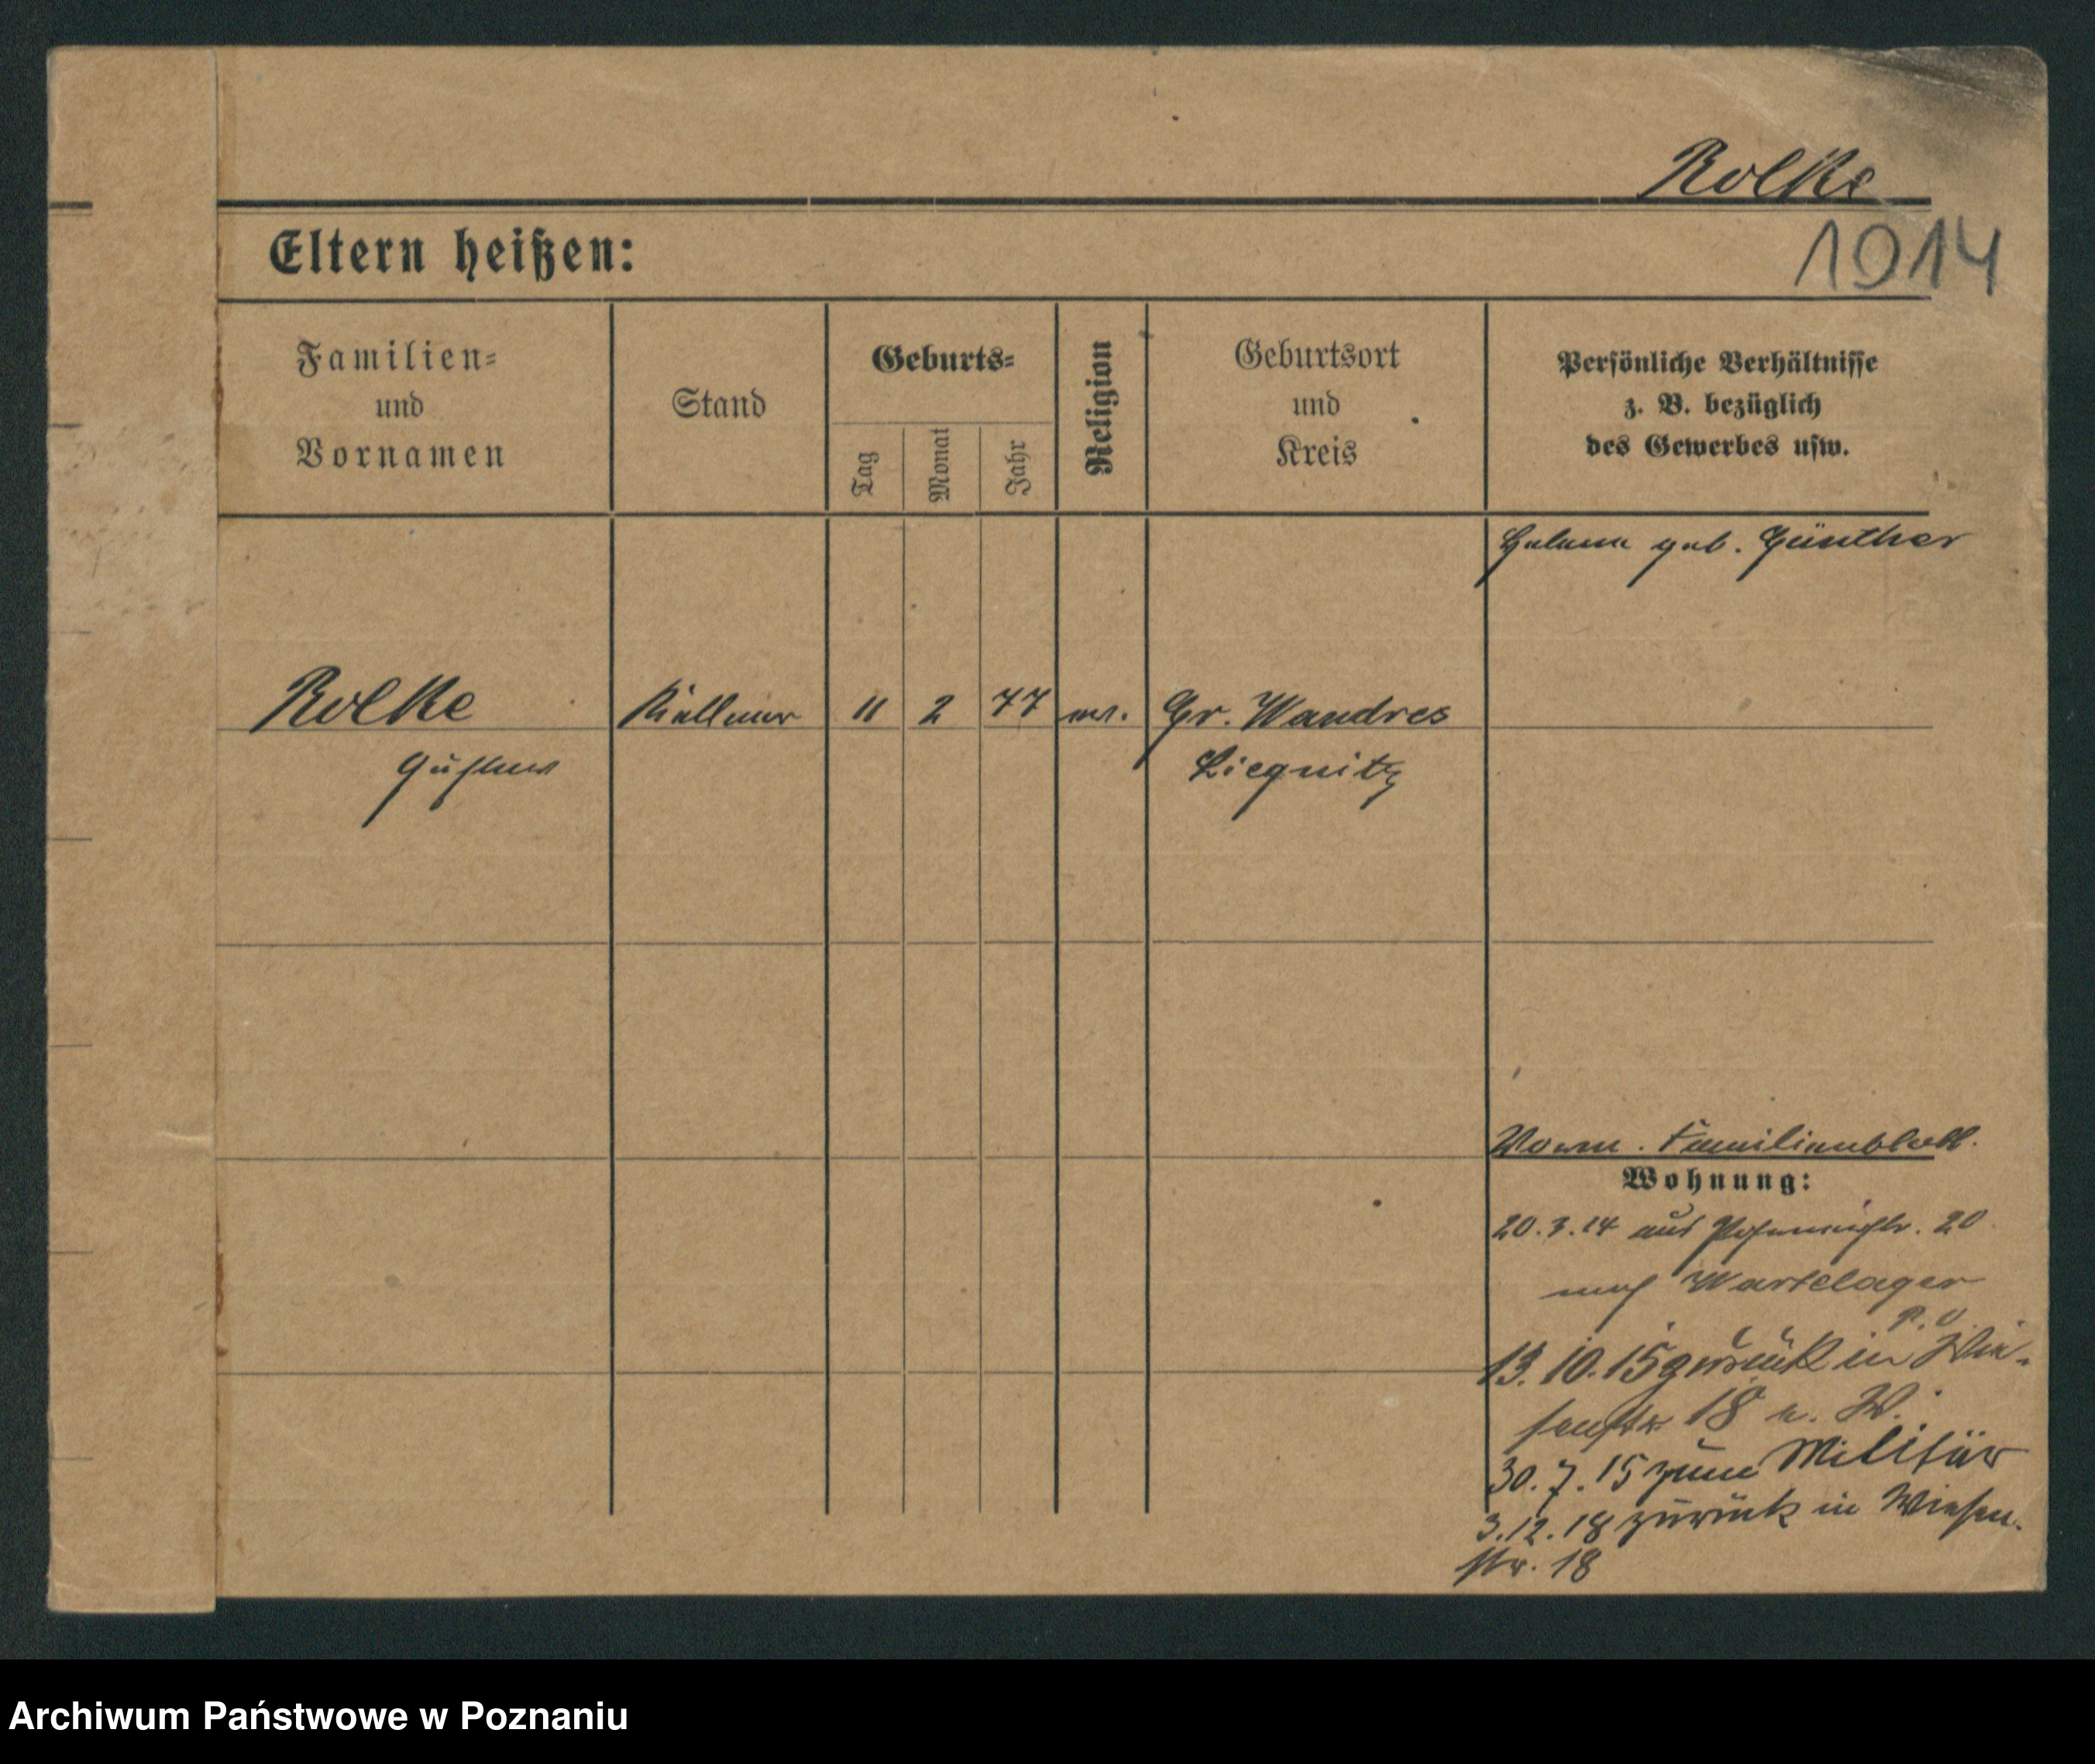 Rolke
1914
Eltern heißen:
Familien=
und
Vornamen
Stand
Geburts=
Tag
Monat
Jahr
Religion
Geburtsort
und
Kreis
Persönliche Verhältnisse
z. B. bezüglich
des Gewerbes usw.
Helene geb. Günther
Rolke
Kellner
11
2
77
ev.
Gr. Wandres
Gustav
Liegnitz
Familienblatt.
Wohnung:
20.3.14 aus 20
nach Wartelager
13.10.15 zurück in Wie-
senstr 18
30.7.15 zum Militär
3.12.18 zurück in Wiesen-
str. 18
Archiwum Państwowe w Poznaniu